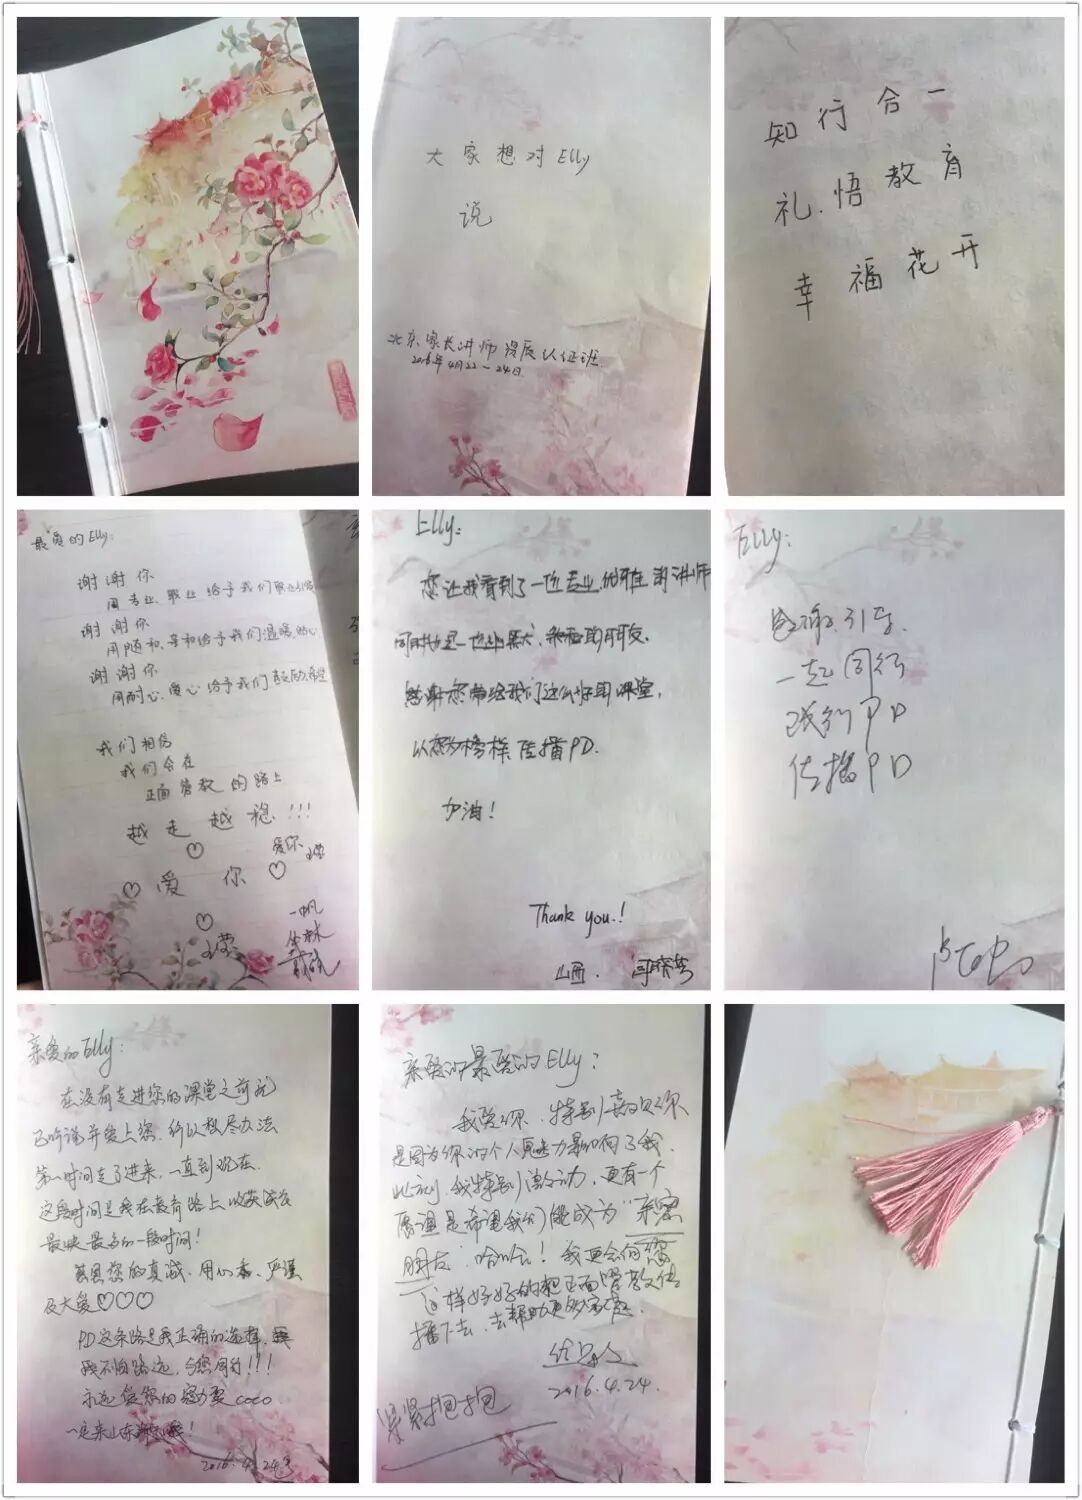 大家想对Elly
说
北京家长讲师资质认证班
2016年4月22-24日
知行合一
礼悟教育
幸福花开
最真的Elly:
谢谢你
用专业、职业给予我们
谢谢你
用随和、亲和给予我们温暖、贴心
谢谢你
用耐心、爱心给予我们鼓励、希望
我们相信
我们会在
正面管教的路上
越走越稳!!!
爱你
爱你
一帆
Elly:
您让我看到了一位专业、优雅的讲师
同时也是一位
感谢您带给我们这么好的课堂,
以您为榜样传播PD.
加油!
Thank you!
山西.
Elly:
感谢引导.
一起同行
践行PD
传播PD
亲爱的Elly:
在没有走进您的课堂之前就
已听说并爱上您,所以想尽办法
第一时间走了进来,一直到现在.
这段时间是我在教育路上收获成长
最快最多的一段时间!
感恩您的真诚、用心、严谨
及大爱♡♡♡
PD这条路是我正确的选择,
我不怕路远,与您同行!!!
永远爱您的 coco
一定来山东
2016.4.24
亲爱的最爱的Elly:
我爱你,特别喜欢你
是因为你的个人魅力影响了我.
此刻,我特别激动,更有一个
愿望是希望我们能成为"亲密
朋友".哈哈哈!我更会向您
这样好好的把正面管教传
播下去,去帮助更多家庭.
2016.4.24.
紧紧抱抱